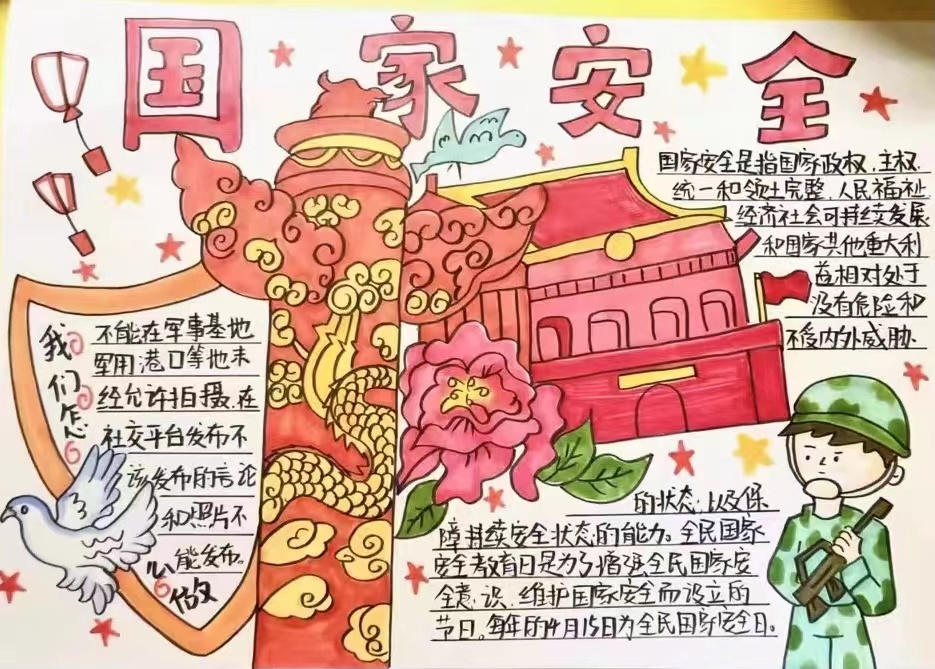 国家安全
我们怎么做
不能在军事基地
军用港口等地未
经允许拍摄.在
社交平台发布不
该发布的言论
和照片不
能发布。
国家安全是指国家政权.主权.
统一和领土完整.人民福祉.
经济社会可持续发展
和国家其他重大利
益相对处于
没有危险和
不受内外威胁.
的状态.以及保
障持续安全状态的能力。全民国家
安全教育日是为了增强全民国家安
全意.识.维护国家安全而设立的
节日。每年的4月15日为全民国家安全日。